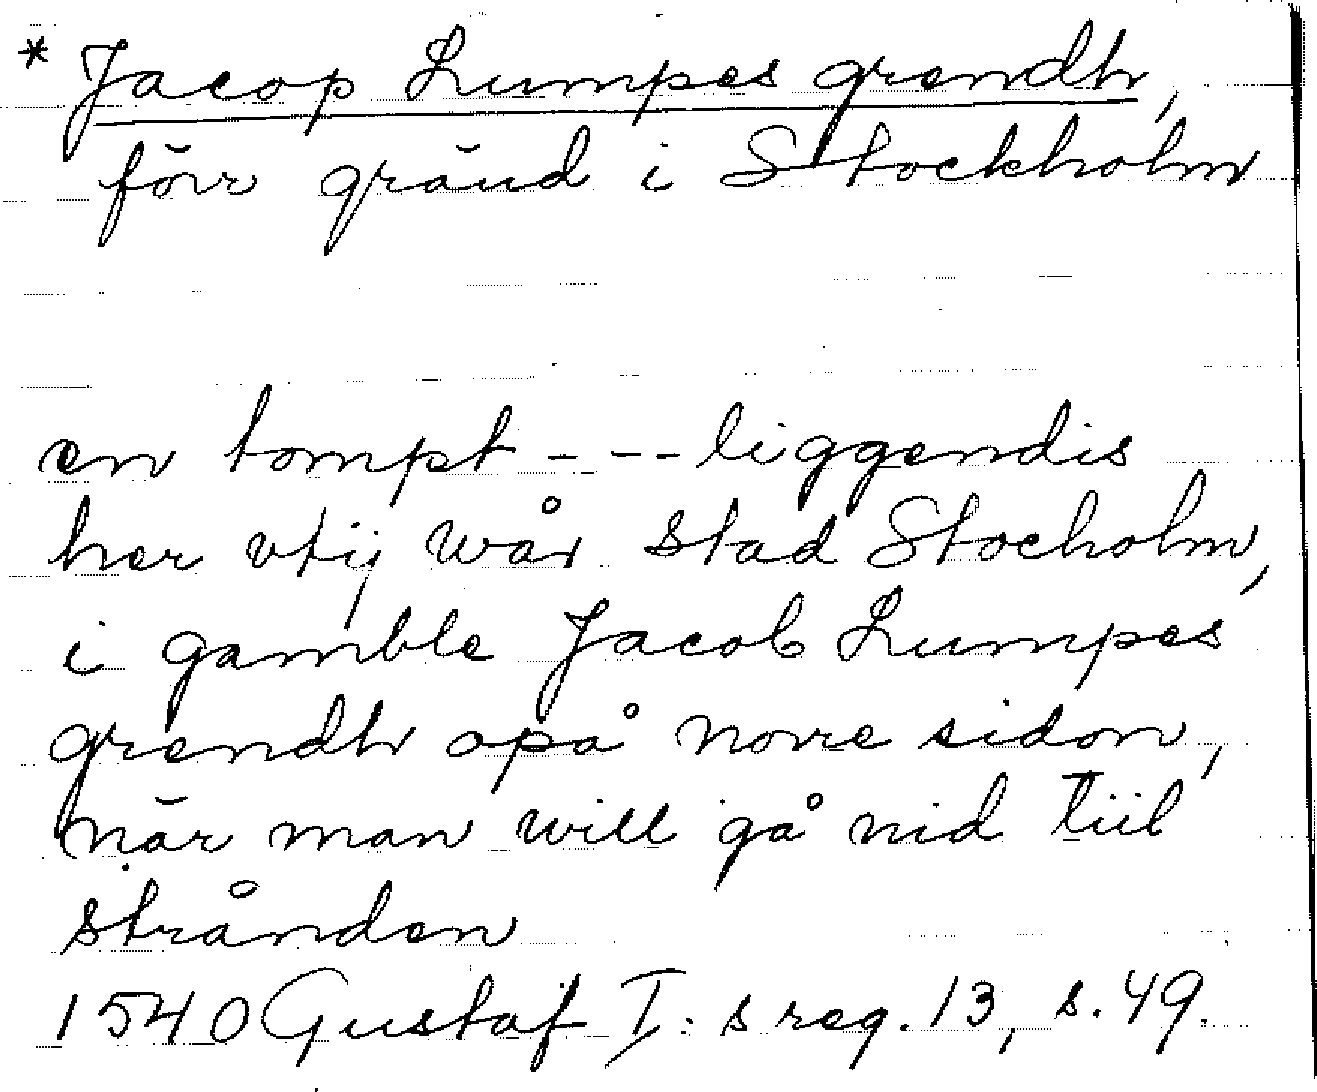 * Jacop Lumpes grendh,
förr gränd i Stockholm
en tompt - - - liggendis
her vtij wår stad Stocholm,
i gamble Jacob Lumpes
grendh opå norre sidon,
när man will gå nid tiil
strånden
1540 Gustaf I:s reg. 13, s. 49.